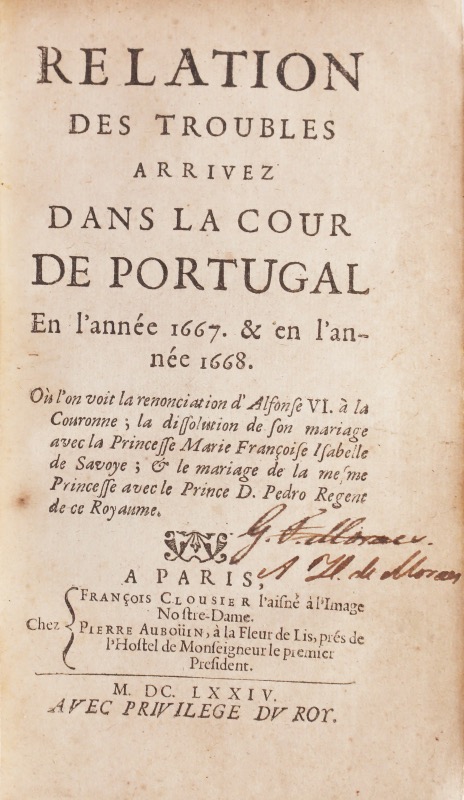 RELATION
DES TROUBLES
ARRIVEZ
DANS LA COUR
DE PORTUGAL
En l'année 1667. & en l'an-
née 1668.
Où l'on voit la renonciation d'Alfonse VI. à la
Couronne ; la dissolution de son mariage
avec la Princesse Marie Françoise Isabelle
de Savoye ; & le mariage de la mesme
Princesse avec le Prince D. Pedro Regent
de ce Royaume.
G. F. Moraes.
A PARIS,
A H. de Moraes
FRANÇOIS CLOUSIER l'aisné à l'Image
Nostre-Dame.
Chez
PIERRE AUBOÜIN, à la Fleur de Lis, prés de
l'Hostel de Monseigneur le premier
President.
M. DC. LXXIV.
AVEC PRIVILEGE DV ROY.